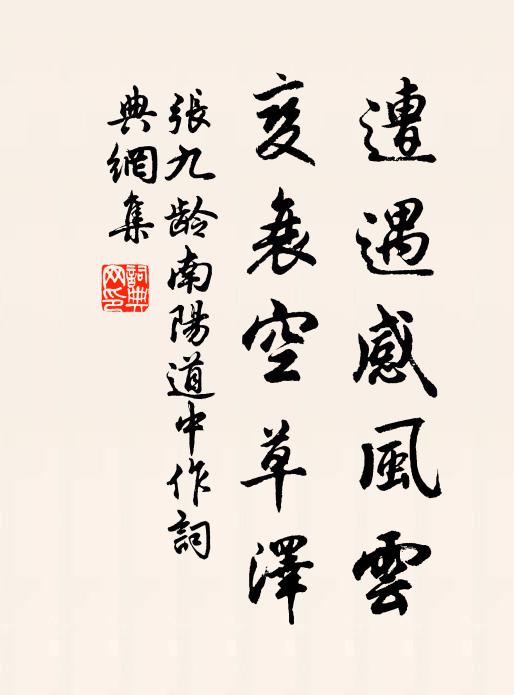 遭遇感風雲
變衰空草澤
張九龄南陽道中作詞
典網集
詞典
网印